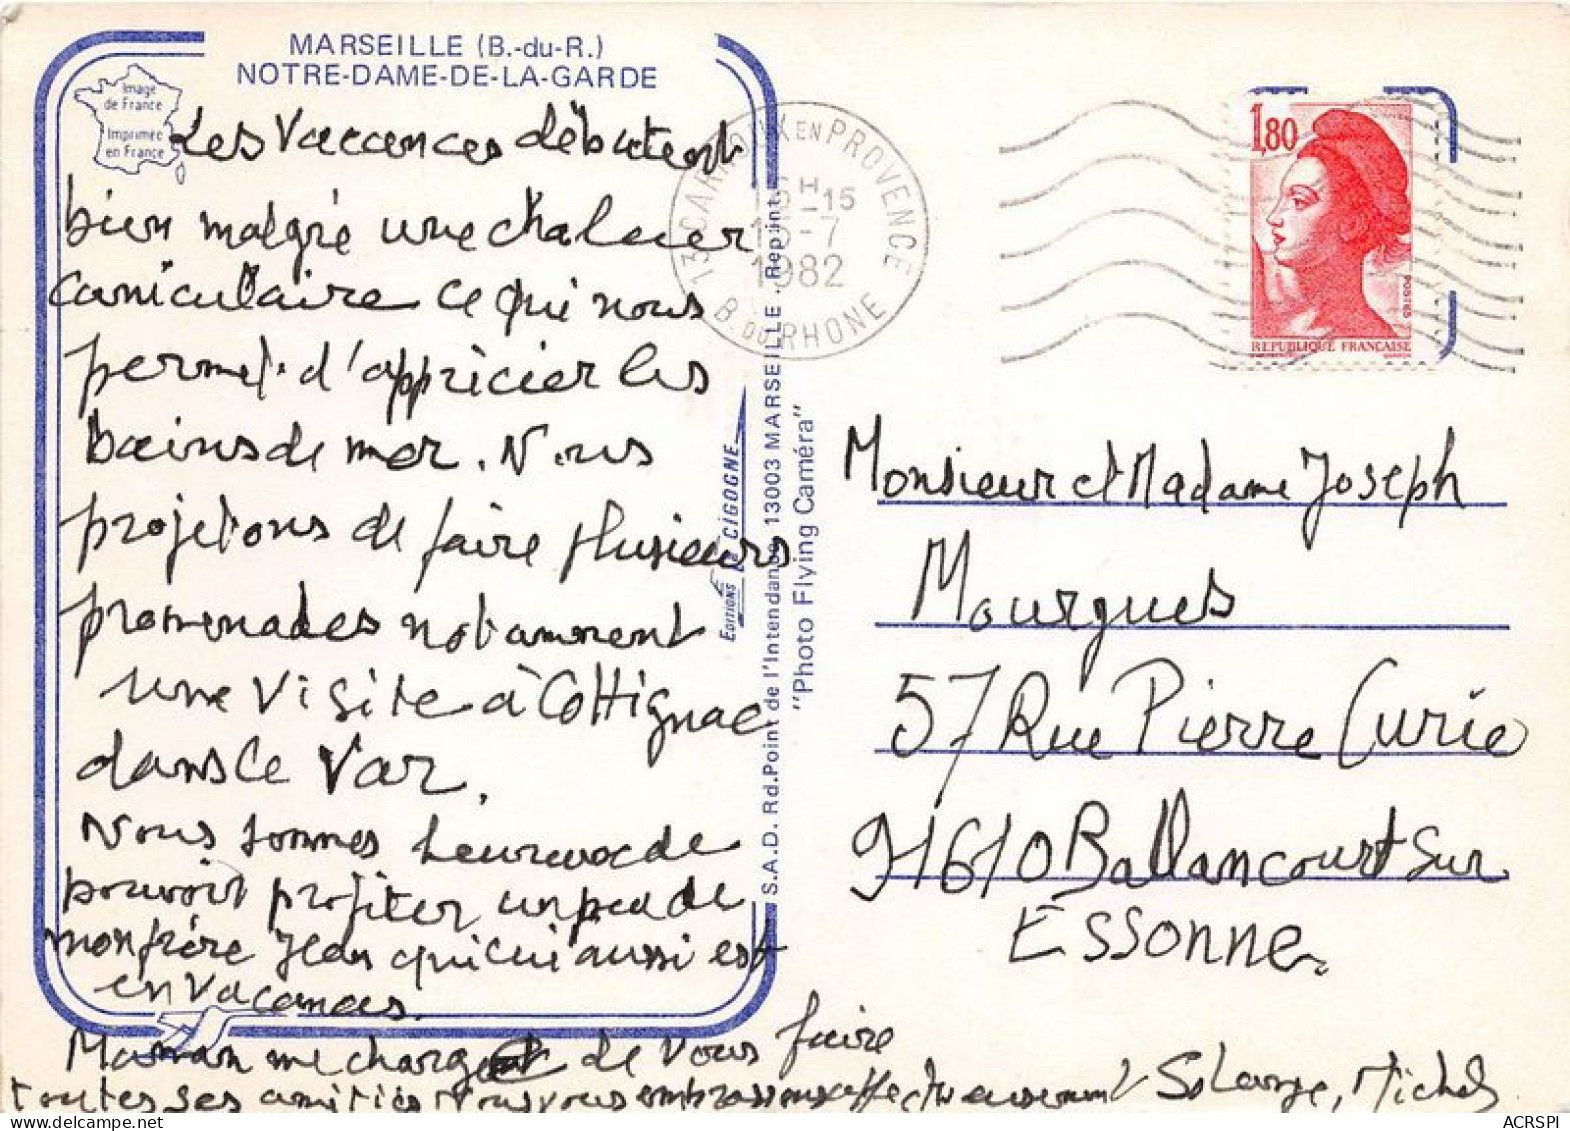 MARSEILLE (B.-du-R.)
NOTRE-DAME-DE-LA-GARDE
Image
de France
Imprimée
en France
Les Vacances débutent
bien malgré une chaleur
caniculaire ce qui nous
permet d'apprécier les
bains de mer. Nous
projetons de faire plusieurs
promenades notamment
une visite à Cottignac
dans le Var.
Nous sommes heureux de
pouvoir profiter un peu de
mon frère Jean qui lui aussi est
en vacances.
Maman me charge de vous faire
toutes ses amitiés Nous vous embrassons affectueusement Solange, Michel
EDITIONS LA CIGOGNE
S.A.D. Rd.Point de l'Intendance 13003 MARSEILLE . Repint.
"Photo Flying Caméra"
13 CARNOUX EN PROVENCE
16H-15
15-7
1982
B. DU RHONE
1,80
POSTES
REPUBLIQUE FRANCAISE
GANDON
Monsieur et Madame Joseph
Mourgues
57 Rue Pierre Curie
91610 Ballancourt sur
Essonne.
ACRSPI